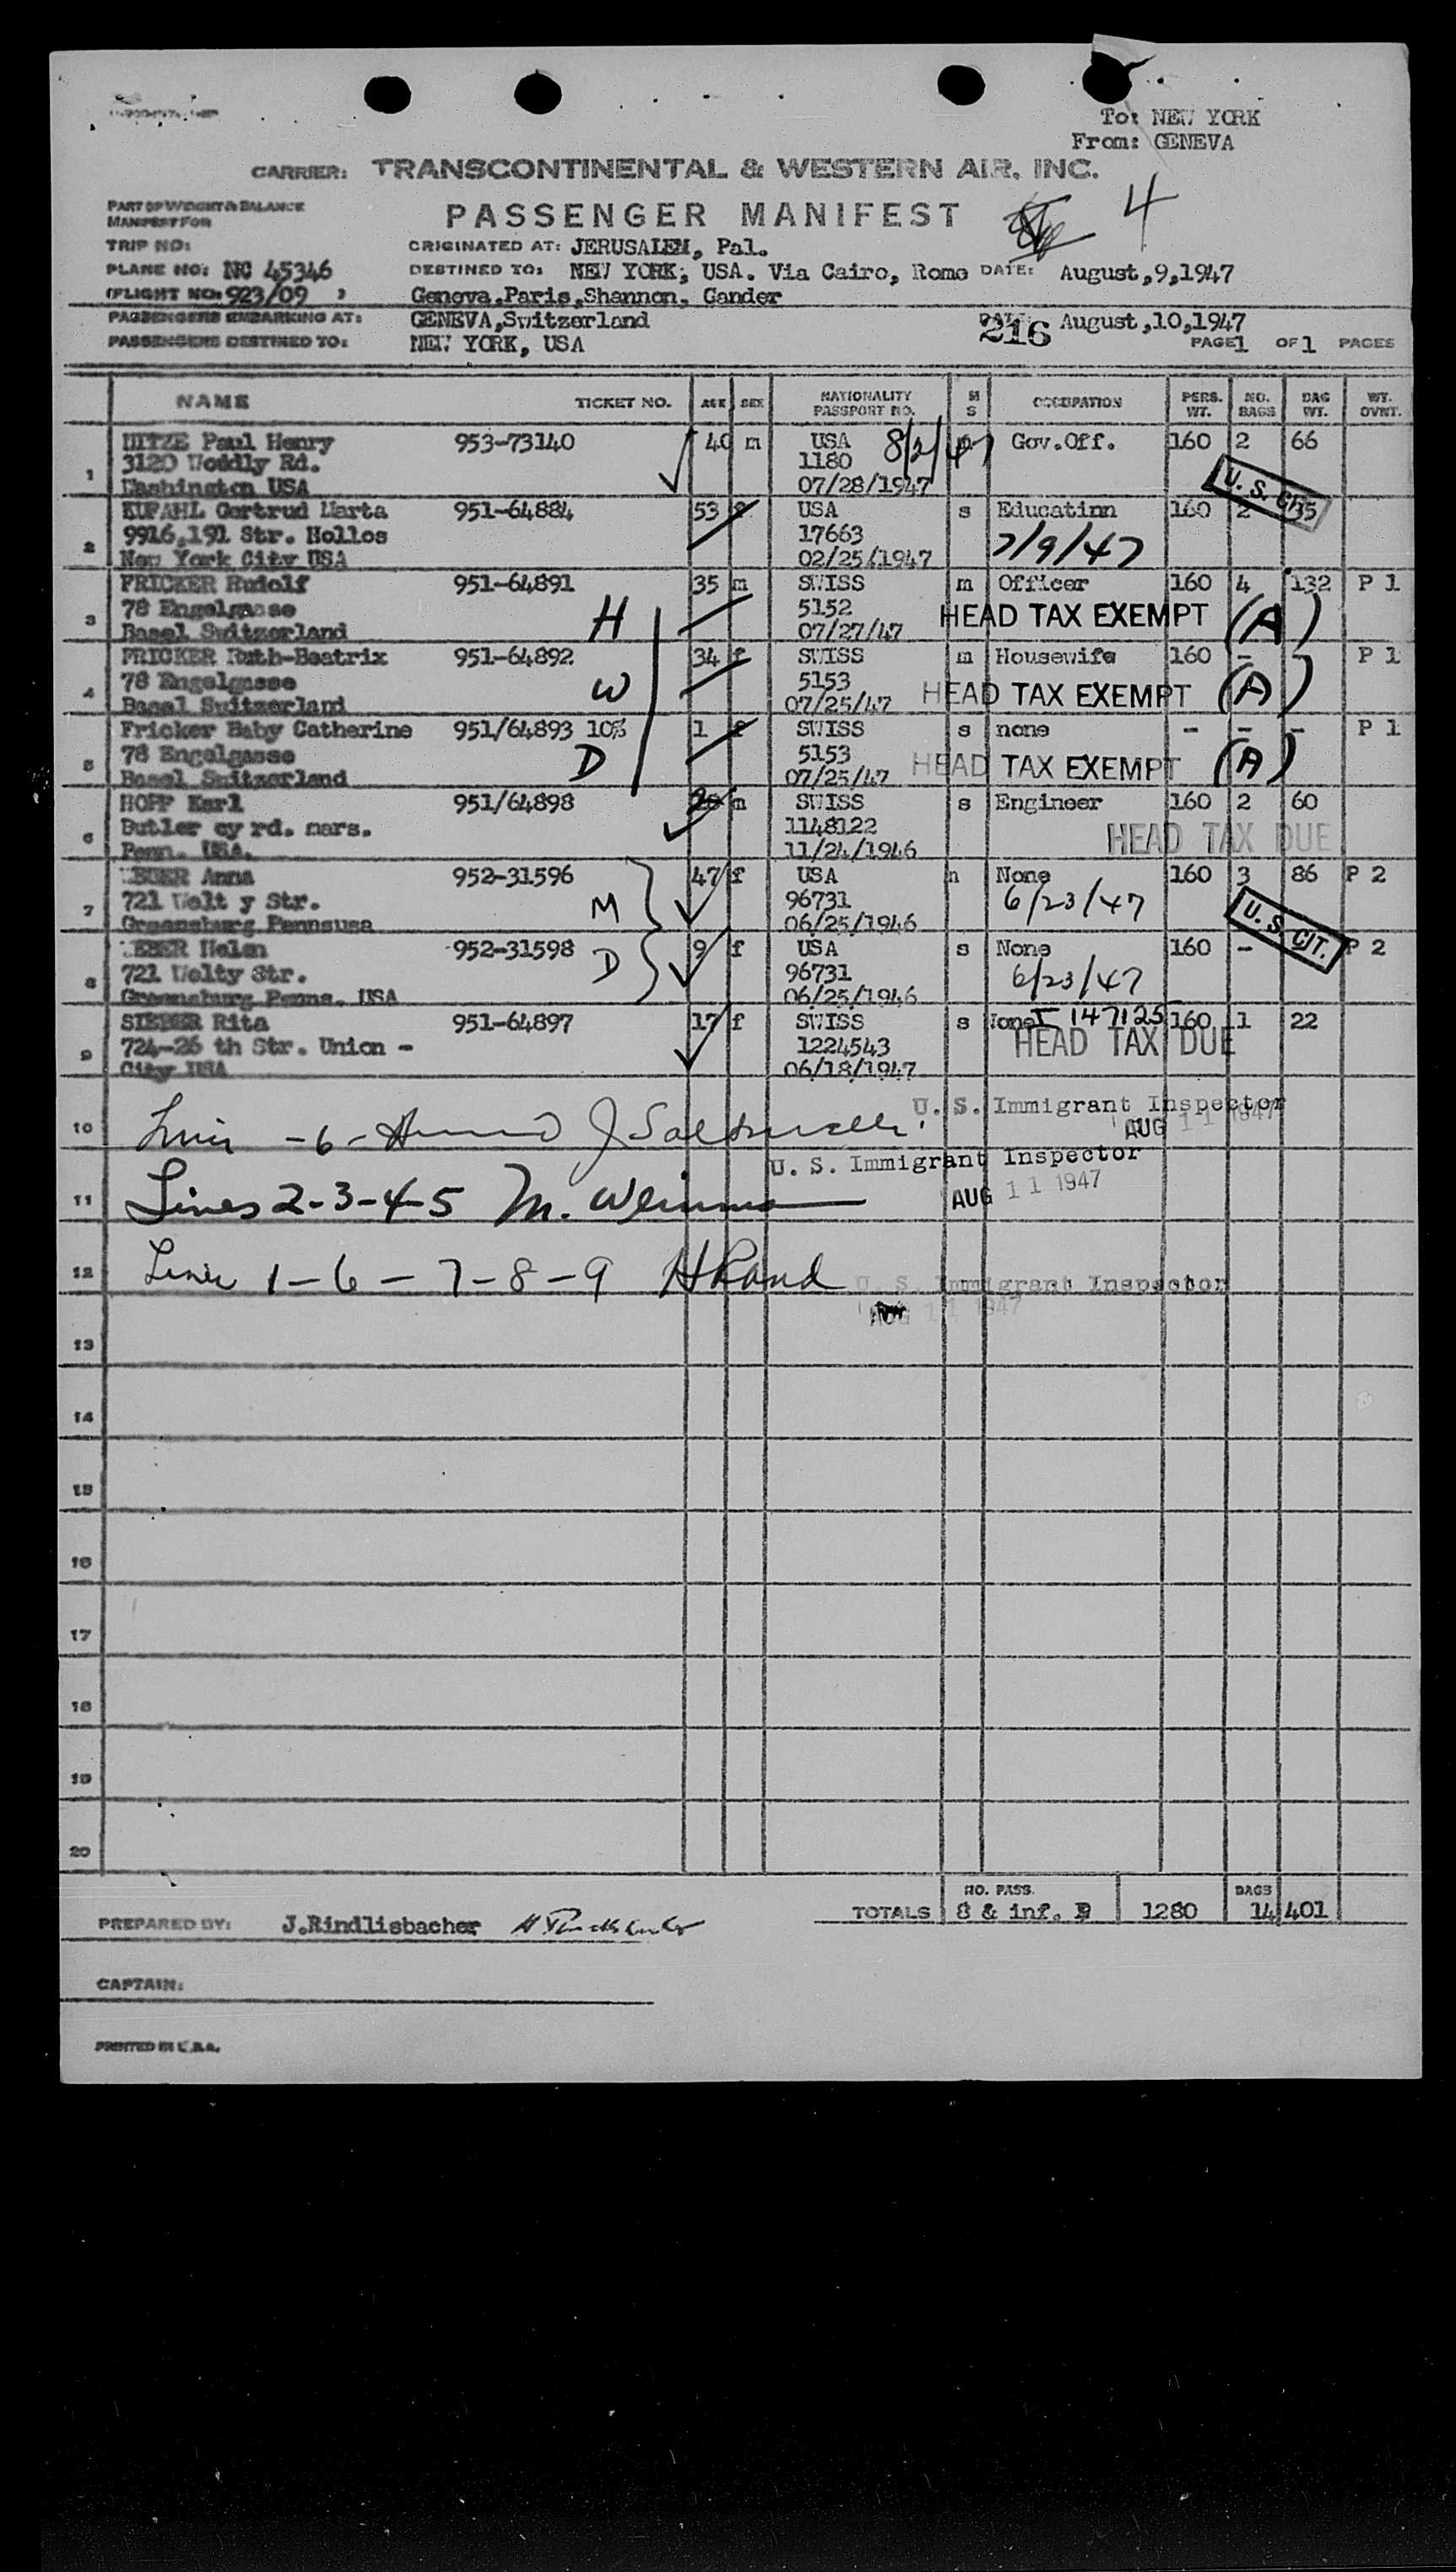 To: NEW YORK
From: GENEVA
CARRIER: TRANSCONTINENTAL & WESTERN AIR, INC.
PART OF WEIGHT & BALANCE
MANIFEST FOR
PASSENGER MANIFEST 4
TRIP NO: ORIGINATED AT: JERUSALEM, Pal.
PLANE NO: NC 45346 DESTINED TO: NEW YORK, USA. Via Cairo, Rome DATE: August,9,1947
(FLIGHT NO: 923/09 ) Geneva,Paris,Shannon, Gander
PASSENGERS EMBARKING AT: GENEVA,Switzerland 216 August,10,1947
PASSENGERS DESTINED TO: NEW YORK, USA PAGE 1 OF 1 PAGES
NAME TICKET NO. AGE SEX NATIONALITY PASSPORT NO. M S OCCUPATION PERS. WT. NO. BAGS BAG WT. WT. OVNT.
NITZE Paul Henry 953-73140 40 m USA 8/2/47 Gov.Off. 160 2 66
1 3120 Woddly Rd. 1180
Washington USA 07/28/1947 U. S. CIT.
KUFAHL Gertrud Marta 951-64884 53 f USA s Educatinn 160 2 35
2 9916,191 Str. Hollos 17663 7/9/47
New York City USA 02/25/1947
FRICKER Rudolf 951-64891 35 m SWISS m Officer 160 4 132 P 1
3 78 Engelgasse H 5152 HEAD TAX EXEMPT (A)
Basel Switzerland 07/27/47
FRICKER Ruth-Beatrix 951-64892 34 f SWISS m Housewife 160 - - P 1
4 78 Engelgasse W 5153 HEAD TAX EXEMPT (A)
Basel Switzerland 07/25/47
Fricker Baby Catherine 951/64893 10% 1 f SWISS s none - - - P 1
5 78 Engelgasse D 5153 HEAD TAX EXEMPT (A)
Basel Switzerland 07/25/47
HOFF Karl 951/64898 m SWISS s Engineer 160 2 60
6 Butler cy rd. mars. 1148122 HEAD TAX DUE
Penn. USA. 11/24/1946
WEBER Anna 952-31596 47 f USA m None 160 3 86 P 2
7 721 Welt y Str. M 96731 6/23/47
Greensburg Pennsusa 06/25/1946 U. S. CIT.
WEBER Helen 952-31598 9 f USA s None 160 - P 2
8 721 Welty Str. D 96731 6/23/47
Greensburg Penna. USA 06/25/1946
SIEBER Rita 951-64897 17 f SWISS s None I 147125 160 1 22
9 724-26 th Str. Union - 1224543 HEAD TAX DUE
City USA 06/18/1947
10 - 6 - U. S. Immigrant Inspector
AUG 11 1947
U. S. Immigrant Inspector
11 Lines 2-3-4-5 M. AUG 11 1947
12 Lines 1-6-7-8-9 HRand U. S. Immigrant Inspector
AUG 11 1947
13
14
15
16
17
18
19
20
NO. PASS. BAGS
PREPARED BY: J.Rindlisbacher TOTALS 8 & inf. 1280 14 401
CAPTAIN:
PRINTED IN U.S.A.